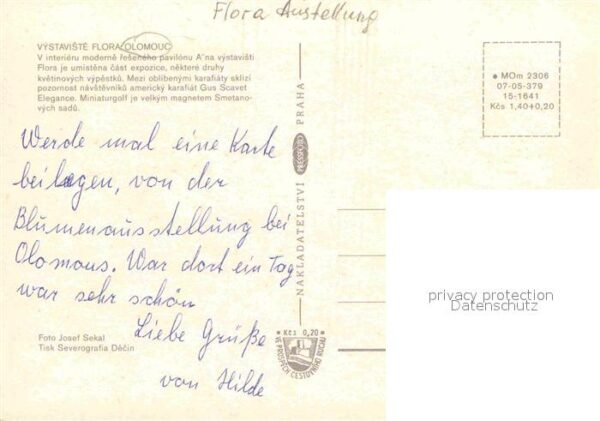 Flora Austellung
VÝSTAVIŠTĚ FLORA OLOMOUC
V interiéru moderně řešeného pavilónu A na výstavišti
Flora je umístěna část expozice, některé druhy
květinových výpěstků. Mezi oblíbenými karafiáty sklízí
pozornost návštěvníků americký karafiát Gus Scavet
Elegance. Miniaturgolf je velkým magnetem Smetano-
vých sadů.
Werde mal eine Karte
beilegen, von der
Blumenausstellung bei
Olomous. War dort ein Tag
war sehr schön
Liebe Grüße
von Hilde
Foto Josef Sekal
Tisk Severografia Děčín
NAKLADATELSTVÍ PRESSFOTO PRAHA
Kčs 0,20
VE PROSPĚCH CESTOVNÍHO RUCHU
MOm 2306
07-05-379
15-1641
Kčs 1,40+0,20
privacy protection
Datenschutz